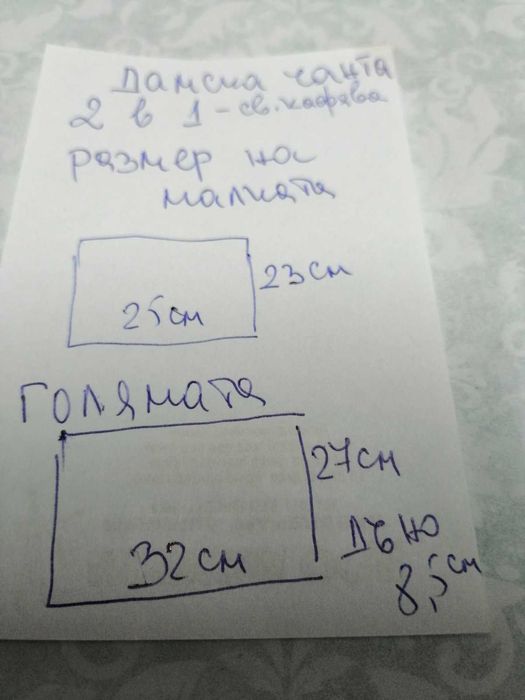 Дамска чанта
2 в 1 - св.кафява
размер на
малката
23 см
25 см
ГОЛЯМАТА
27 см
32 см
дъно
8,5 см